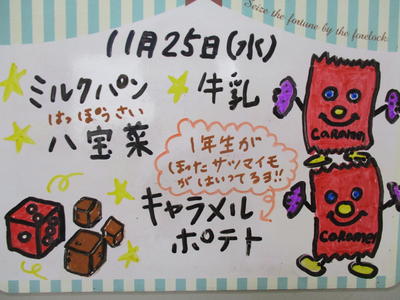 Seize the fortune by the forelock.
11月25日(水)
ミルクパン
牛乳
はっぽうさい
八宝菜
1年生が
ほったサツマイモ
がはいってるヨ!!
キャラメル
ポテト
CaRamel
CaRamel